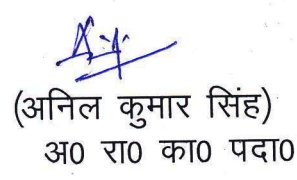 (अनिल कुमार सिंह)
अ0 रा0 का0 पदा0